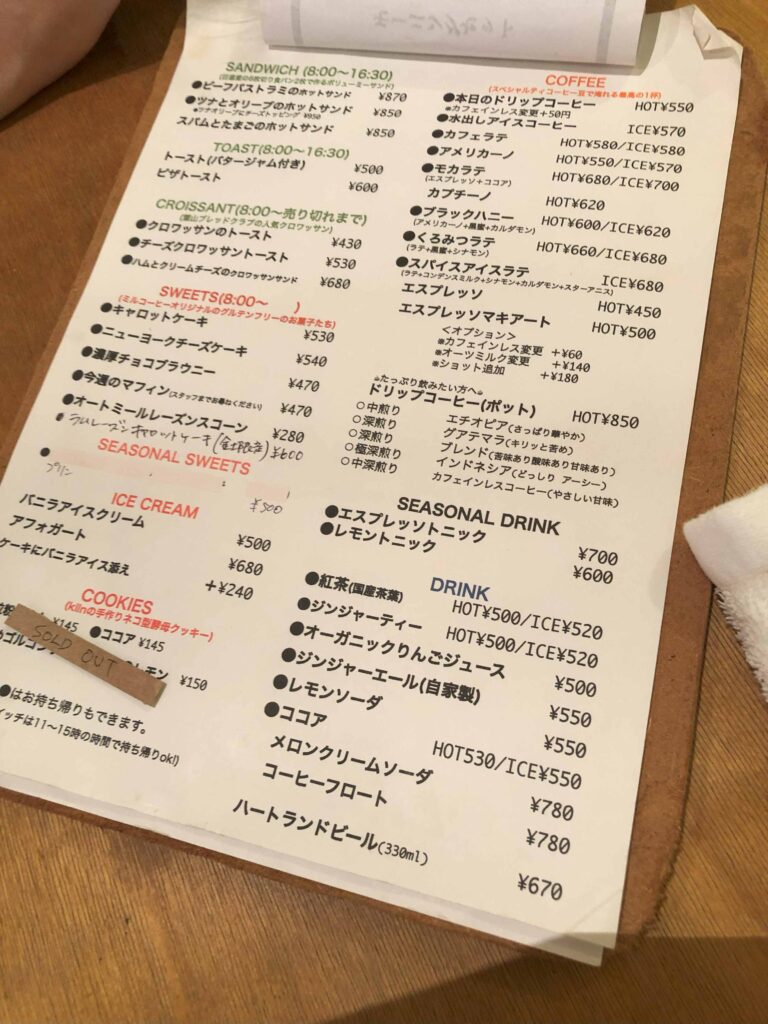 SANDWICH (8:00〜16:30)
●ビーフパストラミのホットサンド ¥870
●ツナとオリーブのホットサンド ¥850
スパムとたまごのホットサンド ¥850
TOAST(8:00〜16:30)
トースト(バタージャム付き) ¥500
ピザトースト ¥600
CROISSANT(8:00〜売り切れまで)
(富山ブレッドクラブの人気クロワッサン)
●クロワッサンのトースト ¥430
●チーズクロワッサントースト ¥530
●ハムとクリームチーズのクロワッサンサンド ¥680
SWEETS(8:00〜 )
(ミルコーヒーオリジナルのグルテンフリーのお菓子たち)
●キャロットケーキ ¥530
●ニューヨークチーズケーキ ¥540
●濃厚チョコブラウニー ¥470
●今週のマフィン(スタッフまでお尋ねください) ¥470
●オートミールレーズンスコーン ¥280
・ラムレーズンキャロットケーキ ¥600
SEASONAL SWEETS
●
プリン ¥500
ICE CREAM
バニラアイスクリーム ¥500
アフォガート ¥680
ケーキにバニラアイス添え +¥240
COOKIES
(kiinの手作りネコ型酵母クッキー)
¥145 ●ココア ¥145
SOLD OUT
レモン ¥150
●はお持ち帰りもできます。
イッチは11〜15時の時間で持ち帰りok!)
COFFEE
(スペシャルティコーヒー豆で淹れる最高の1杯)
●本日のドリップコーヒー HOT¥550
※カフェインレス変更+50円
●水出しアイスコーヒー ICE¥570
●カフェラテ HOT¥580/ICE¥580
●アメリカーノ HOT¥550/ICE¥570
●モカラテ HOT¥680/ICE¥700
(エスプレッソ+ココア)
カプチーノ HOT¥620
●ブラックハニー HOT¥600/ICE¥620
(アメリカーノ+黒蜜+カルダモン)
●くろみつラテ HOT¥660/ICE¥680
(ラテ+黒蜜+シナモン)
●スパイスアイスラテ ICE¥680
(ラテ+コンデンスミルク+シナモン+カルダモン+スターアニス)
エスプレッソ HOT¥450
エスプレッソマキアート HOT¥500
<オプション>
※カフェインレス変更 +¥60
※オーツミルク変更 +¥140
※ショット追加 +¥180
☕たっぷり飲みたい方へ☕
ドリップコーヒー(ポット) HOT¥850
○中煎り エチオピア(さっぱり華やか)
○深煎り グアテマラ(キリッと苦め)
○深煎り ブレンド(苦味あり酸味あり甘味あり)
○極深煎り インドネシア(どっしり アーシー)
○中深煎り カフェインレスコーヒー(やさしい甘味)
SEASONAL DRINK
●エスプレッソトニック ¥700
●レモントニック ¥600
DRINK
●紅茶(国産茶葉) HOT¥500/ICE¥520
●ジンジャーティー HOT¥500/ICE¥520
●オーガニックりんごジュース ¥500
●ジンジャーエール(自家製) ¥550
●レモンソーダ ¥550
●ココア HOT530/ICE¥550
メロンクリームソーダ ¥780
コーヒーフロート ¥780
ハートランドビール(330ml) ¥670